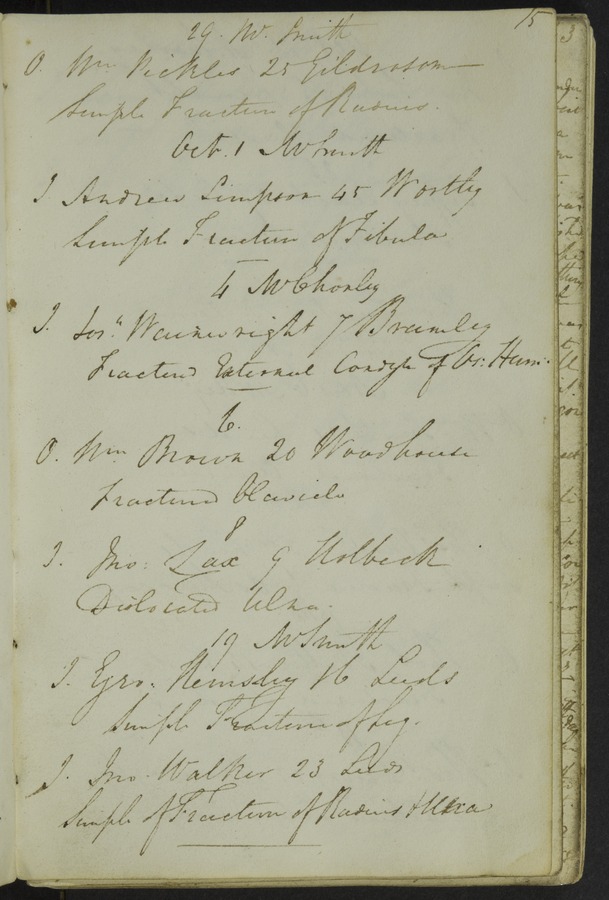 15
29. Mr. Smith
O. Wm Pickles 25 Gildersom
Simple Fracture of Radius.
Oct. 1 Mr Smith
I Andrew Simpson 45 Wortley
Simple Fracture of Fibula
4 Mr Chorley
I. Josh. Wainwright 7 Bramley
Fractured External Condyle of Os: Hum:
6.
O. Wm Brown 20 Woodhouse
Fractured Clavicle
8
I. Jno: Lax 9 Holbeck
Dislocated Ulna.
19 Mr Smith
I. Geo. Hemsley 16 Leeds
Simple Fracture of Leg.
I. Jno. Walker 23 Leeds
Simple Fracture of Radius & Ulna
3